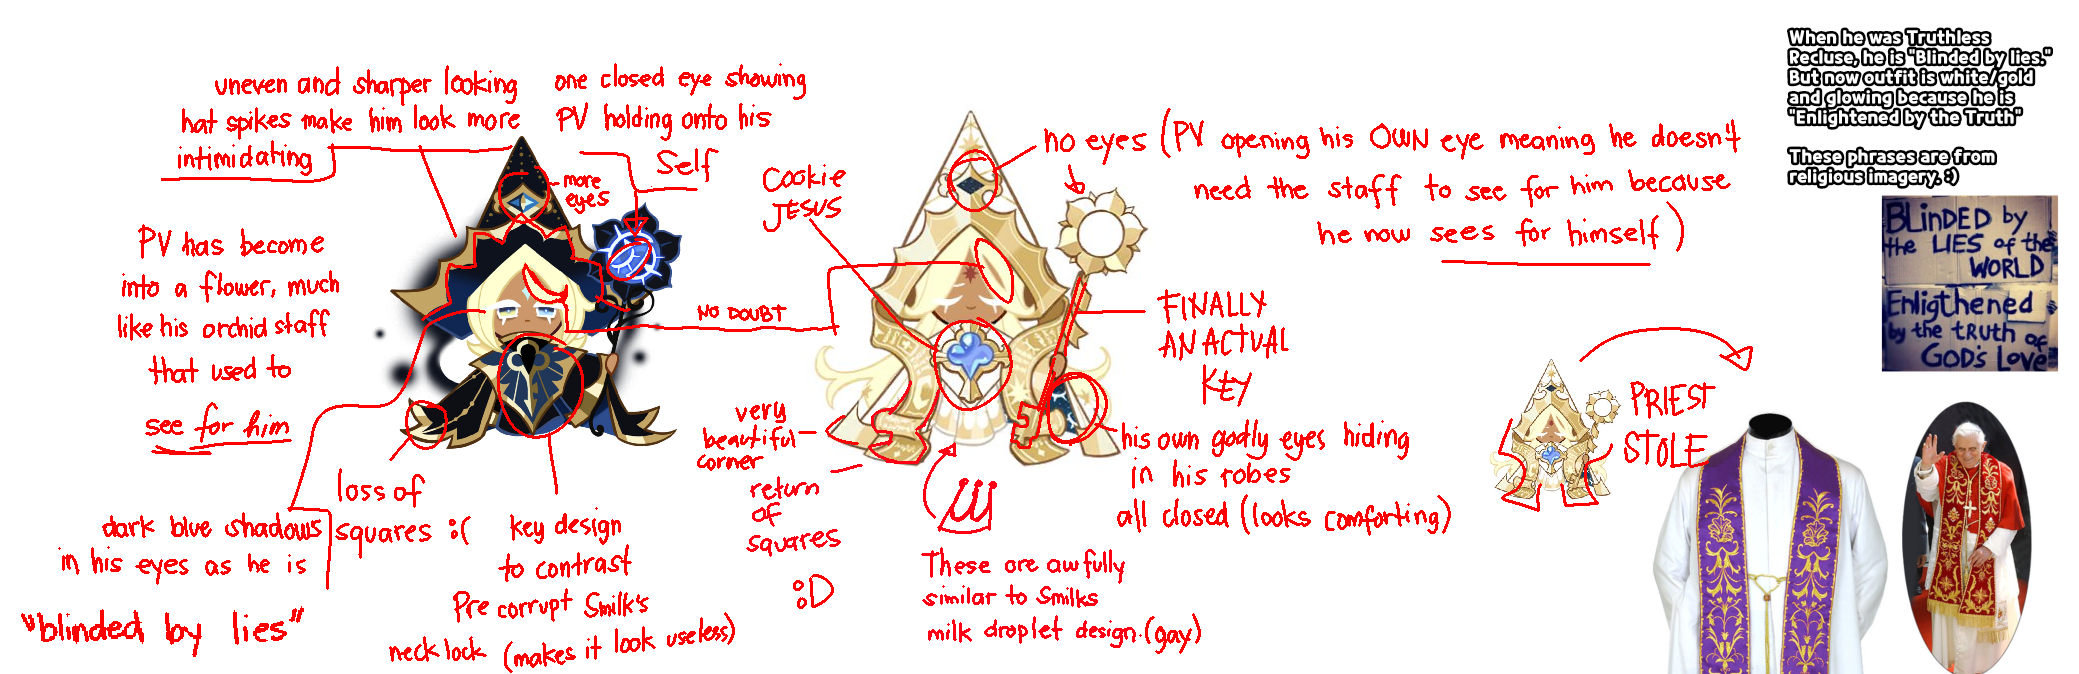 uneven and sharper looking
hat spikes make him look more
intimidating
one closed eye showing
PV holding onto his
Self
more
eyes
PV has become
into a flower, much
like his orchid staff
that used to
see for him
loss of
squares :(
dark blue shadows
in his eyes as he is
"blinded by lies"
key design
to contrast
Pre corrupt Smilk's
neck lock (makes it look useless)
NO DOUBT
Cookie
JESUS
no eyes (PV opening his OWN eye meaning he doesn't
need the staff to see for him because
he now sees for himself)
FINALLY
AN ACTUAL
KEY
very
beautiful
corner
return
of
squares
:D
his own godly eyes hiding
in his robes
all closed (looks comforting)
These are awfully
similar to Smilks
milk droplet design. (gay)
PRIEST
STOLE
When he was Truthless
Recluse, he is "Blinded by lies."
But now outfit is white/gold
and glowing because he is
"Enlightened by the Truth"
These phrases are from
religious imagery. :)
BLinDED by
the LIES of the
WORLD
Enligthened
by the tRuth of
GOD's Love